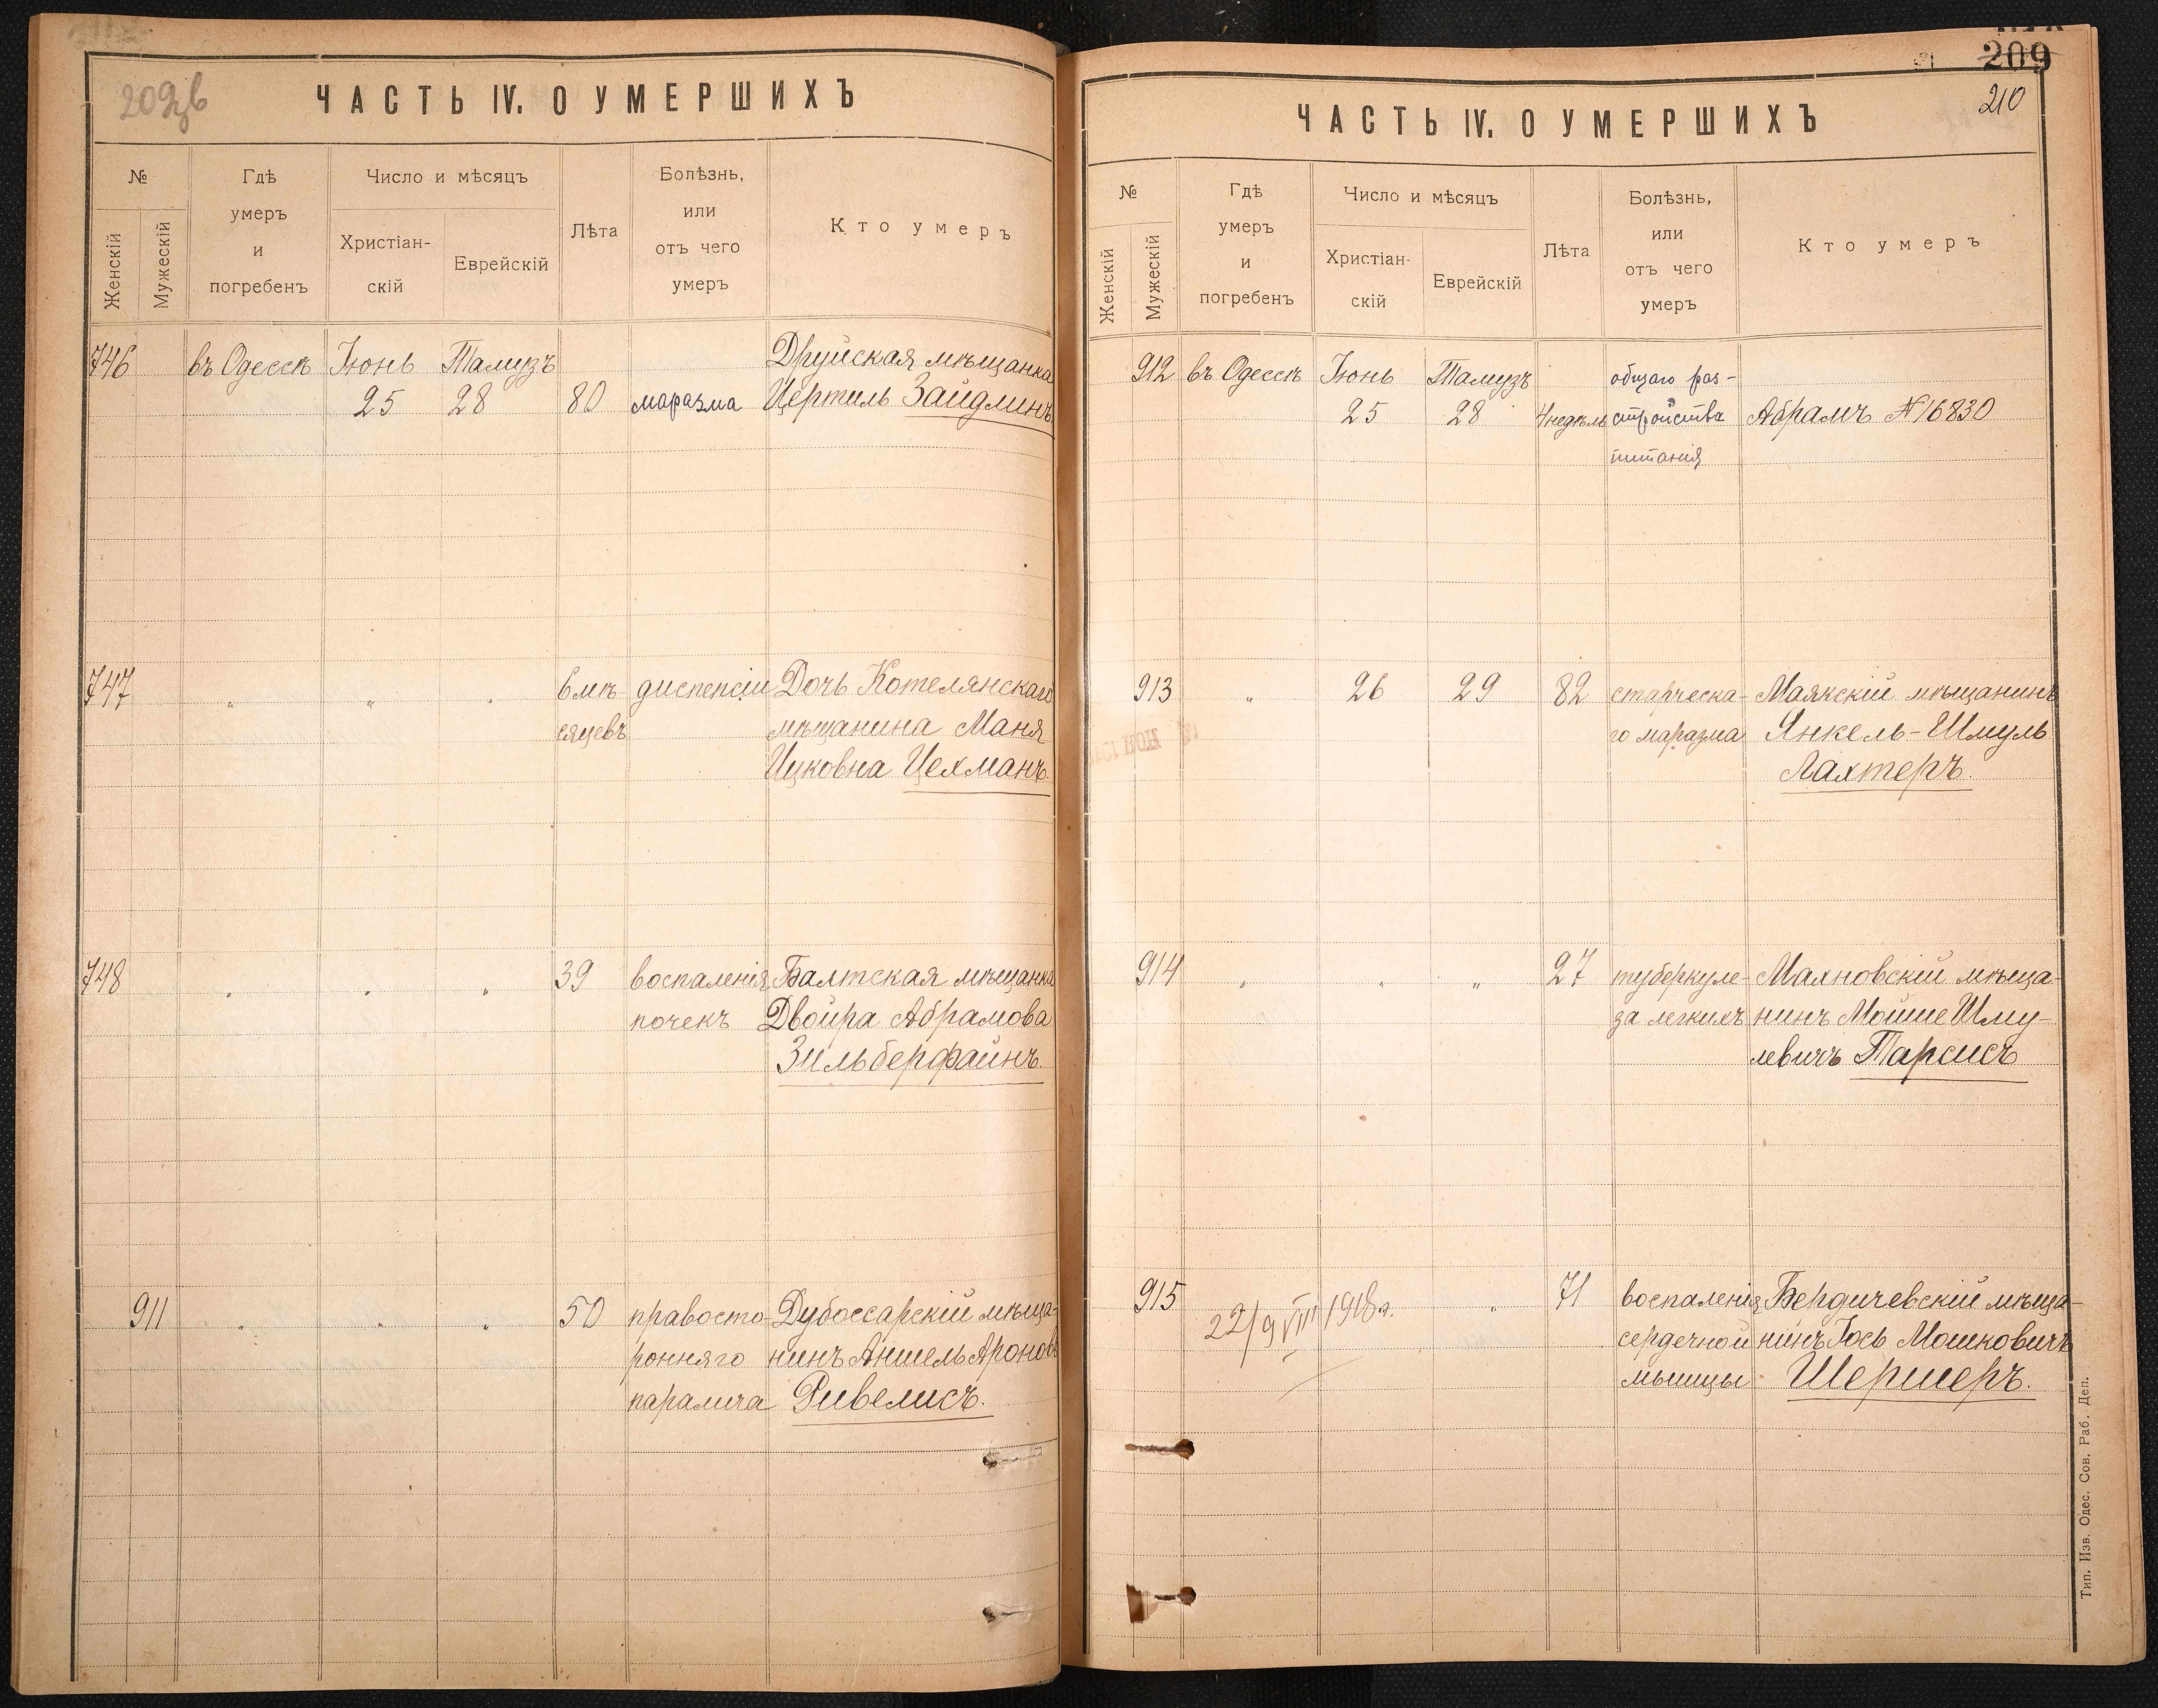 209
ЧАСТЬ IV. О УМЕРШИХЪ
№
Женскій
Мужескій
Гдѣ
умеръ
и
погребенъ
Число и мѣсяцъ
Христіан-
скій
Еврейскій
Лѣта
Болѣзнь,
или
отъ чего
умеръ
Кто умеръ
746 въ Одессѣ Іюнь Тамузъ Друйская мѣщанка
25 28 80 маразма Цертиль Зайдлинъ
747 " " " 6 мѣ- диспепсіи Дочь Котелянскаго
сяцевъ мѣщанина Маня
Ицковна Цехманъ.
748 " " " 39 воспаленія Балтская мѣщанка
почекъ Двойра Абрамова
Зильберфайнъ.
911 " " " 50 правосто- Дубоссарскій мѣща-
ронняго нинъ Аншель Ароновъ
паралича Ривелисъ.
209
210
ЧАСТЬ IV. О УМЕРШИХЪ
№
Женскій
Мужескій
Гдѣ
умеръ
и
погребенъ
Число и мѣсяцъ
Христіан-
скій
Еврейскій
Лѣта
Болѣзнь,
или
отъ чего
умеръ
Кто умеръ
912 въ Одессѣ Іюнь Тамузъ общаго раз-
25 28 4 недѣль стройства Абрамъ №16830
питанія
913 " 26 29 82 старческа- Маякскій мѣщанинъ
го маразма Янкель-Шмуль
Лахтеръ.
914 " " " 27 туберкуле- Махновскій мѣща-
за легкихъ нинъ Мойше Шму-
левичъ Тарсисъ
915 22/9 VIII 1918 г. " 71 воспаленія Бердичевскій мѣща-
сердечной нинъ Іось Мошковичъ
мышцы Шершеръ.
Тип. Изв. Одес. Сов. Раб. Деп.